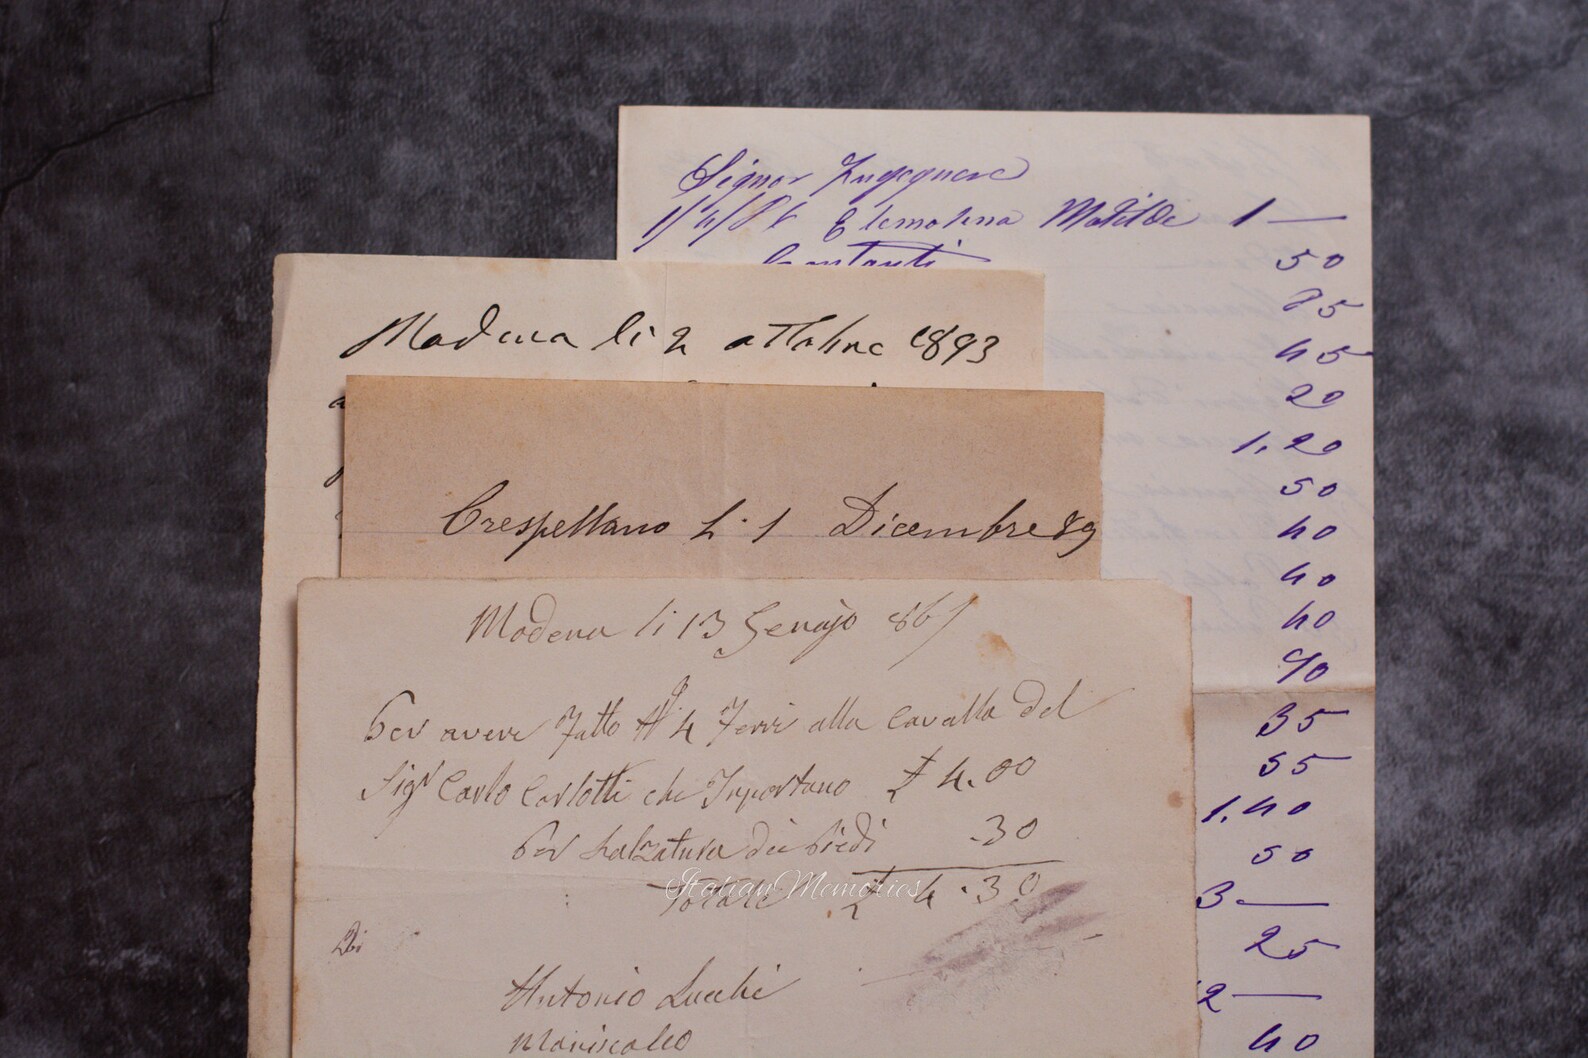 Signor Ingegnere
Elemosina Matilde 1 —
Contanti 50
85
45
20
1.20
50
40
40
40
90
35
55
1.40
50
3. —
25
2 —
40
Modena li 2 ottobre 1893
Crespellano li 1 Dicembre 89
Modena li 13 Genajo 867
Per avere Fatto N 4 Ferri alla Cavalla del
Sigr Carlo Carlotti che Inportano £ 4.00
Per Salzatura dei Piedi .30
Totale £ 4.30
Di
Antonio Lucchi
Maniscalco
Italian Memories